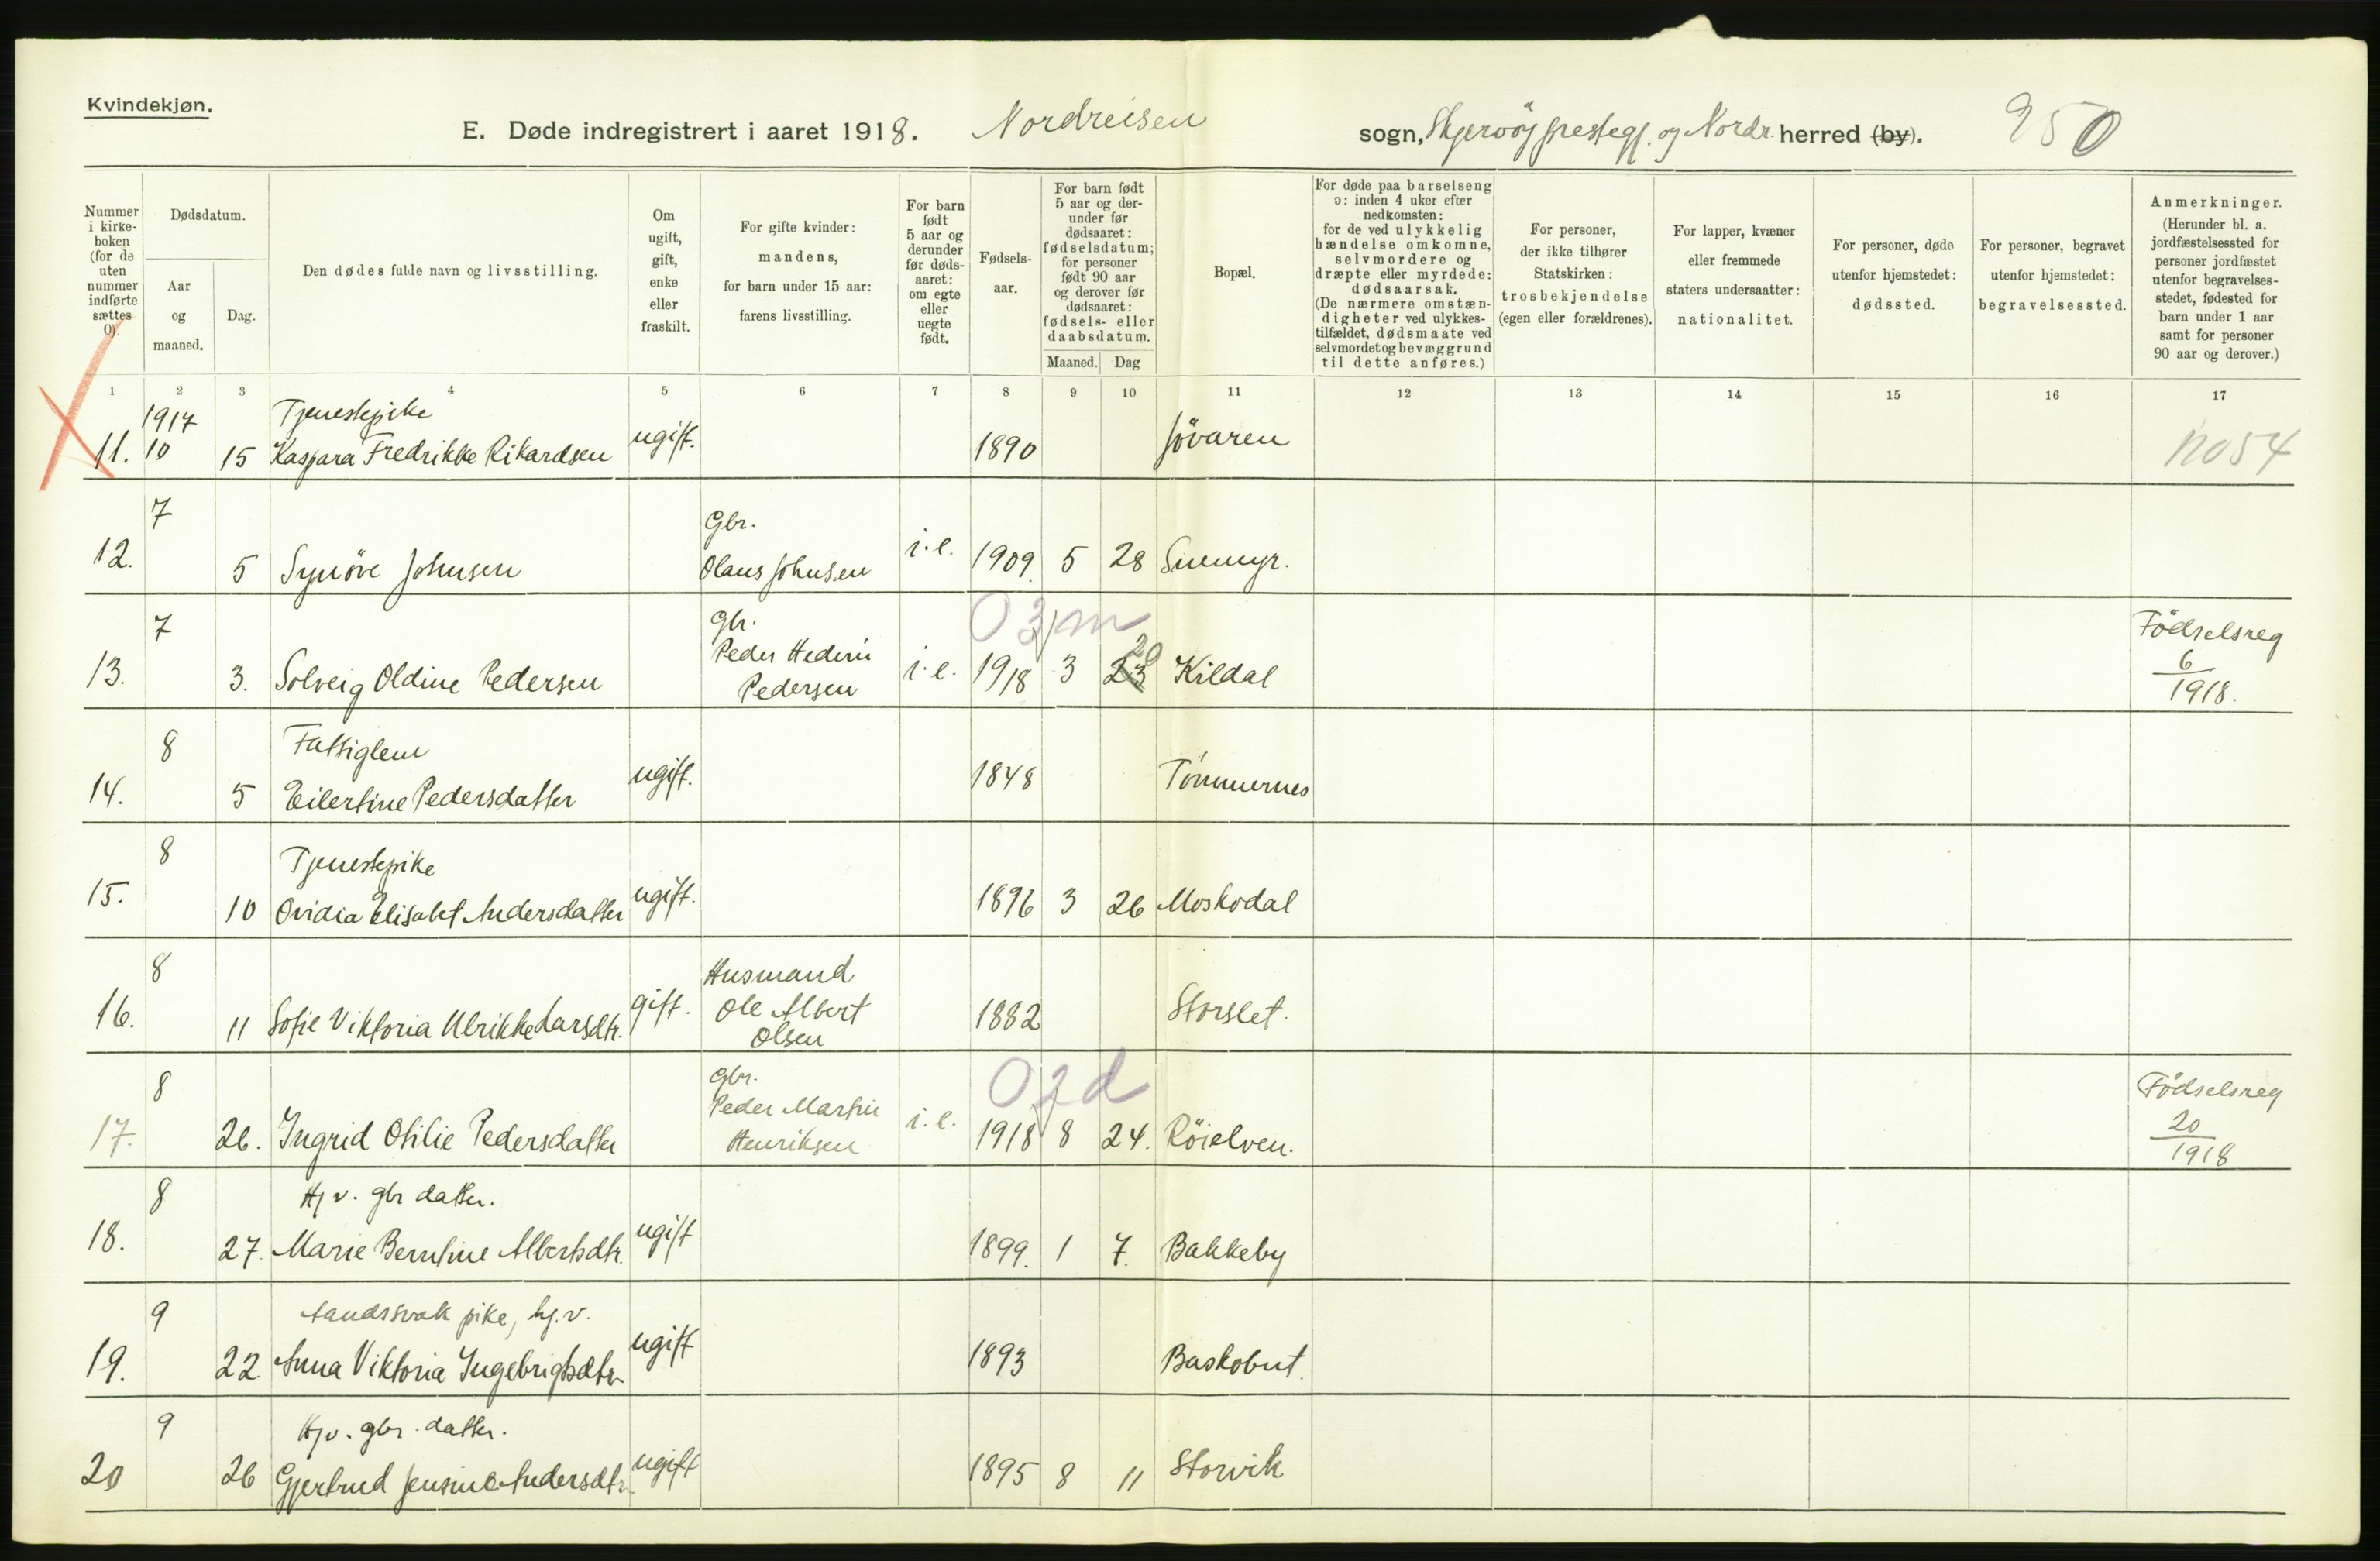 Kvindekjøn.
E. Døde indregistrert i aaret 1918. Nordreisen sogn, Skjervøy prestegj. og Nordr. herred (by). 950
Nummer i kirke-boken (for de uten nummer indførte sættes 0).
Dødsdatum.
Aar og maaned.
Dag.
Den dødes fulde navn og livsstilling.
Om ugift, gift, enke eller fraskilt.
For gifte kvinder: mandens, for barn under 15 aar: farens livsstilling.
For barn født 5 aar og derunder før døds-aaret: om egte eller uegte født.
Fødsels-aar.
For barn født 5 aar og der-under før dødsaaret: fødselsdatum; for personer født 90 aar og derover før dødsaaret: fødsels- eller daabsdatum.
Maaned. Dag
Bopæl.
For døde paa barselseng ɔ: inden 4 uker efter nedkomsten: for de ved ulykkelig hændelse omkomne, selvmordere og dræpte eller myrdede: dødsaarsak. (De nærmere omstæn-digheter ved ulykkes-tilfældet, dødsmaate ved selvmordet og bevæggrund til dette anføres.)
For personer, der ikke tilhører Statskirken: trosbekjendelse (egen eller forældrenes).
For lapper, kvæner eller fremmede staters undersaatter: nationalitet.
For personer, døde utenfor hjemstedet: dødssted.
For personer, begravet utenfor hjemstedet: begravelsessted.
Anmerkninger. (Herunder bl. a. jordfæstelsessted for personer jordfæstet utenfor begravelses-stedet, fødested for barn under 1 aar samt for personer 90 aar og derover.)
1 2 3 4 5 6 7 8 9 10 11 12 13 14 15 16 17
1917 Tjenestepike
11. 10 15 Kaspara Fredrikke Rikardsen ugift. 1890 Jövaren no 54
7 Gbr.
12. 5 Synöve Johnsen Olaus Johnsen i.e. 1909. 5 28 Snemyr.
7 Gbr. 0 3 m Födselsreg
13. 3. Solveig Oldine Pedersen Peder Hedevin Pedersen i.e. 1918 3 23 20 Kildal 6/1918.
8 Fattiglem
14. 5 Eilertine Pedersdatter ugift. 1848 Tömmernes
8 Tjenestepike
15. 10 Ovidia Elisabet Andersdatter ugift. 1896 3 26 Moskodal
8 Husmand
16. 11 Sofie Viktoria Ulrikke Larsdtr. gift. Ole Albert Olsen 1882 Storslet.
8 Gbr. 0 2 d Födselsreg
17. 26. Ingrid Otilie Pedersdatter Peder Martin Henriksen i.e. 1918 8 24. Röielven. 20/1918
8 Hj v. gbr datter.
18. 27. Marie Berntine Albertsdtr. ugift 1899. 1 7. Bakkeby
9 Aandssvak pike, hj.v.
19. 22. Anna Viktoria Ingebrigtsdtr ugift 1893 Baskobut.
9 Hjv. gbr. datter.
20 26 Gjertrud Jensine Andersdtr. ugift 1895 8 11 Storvik